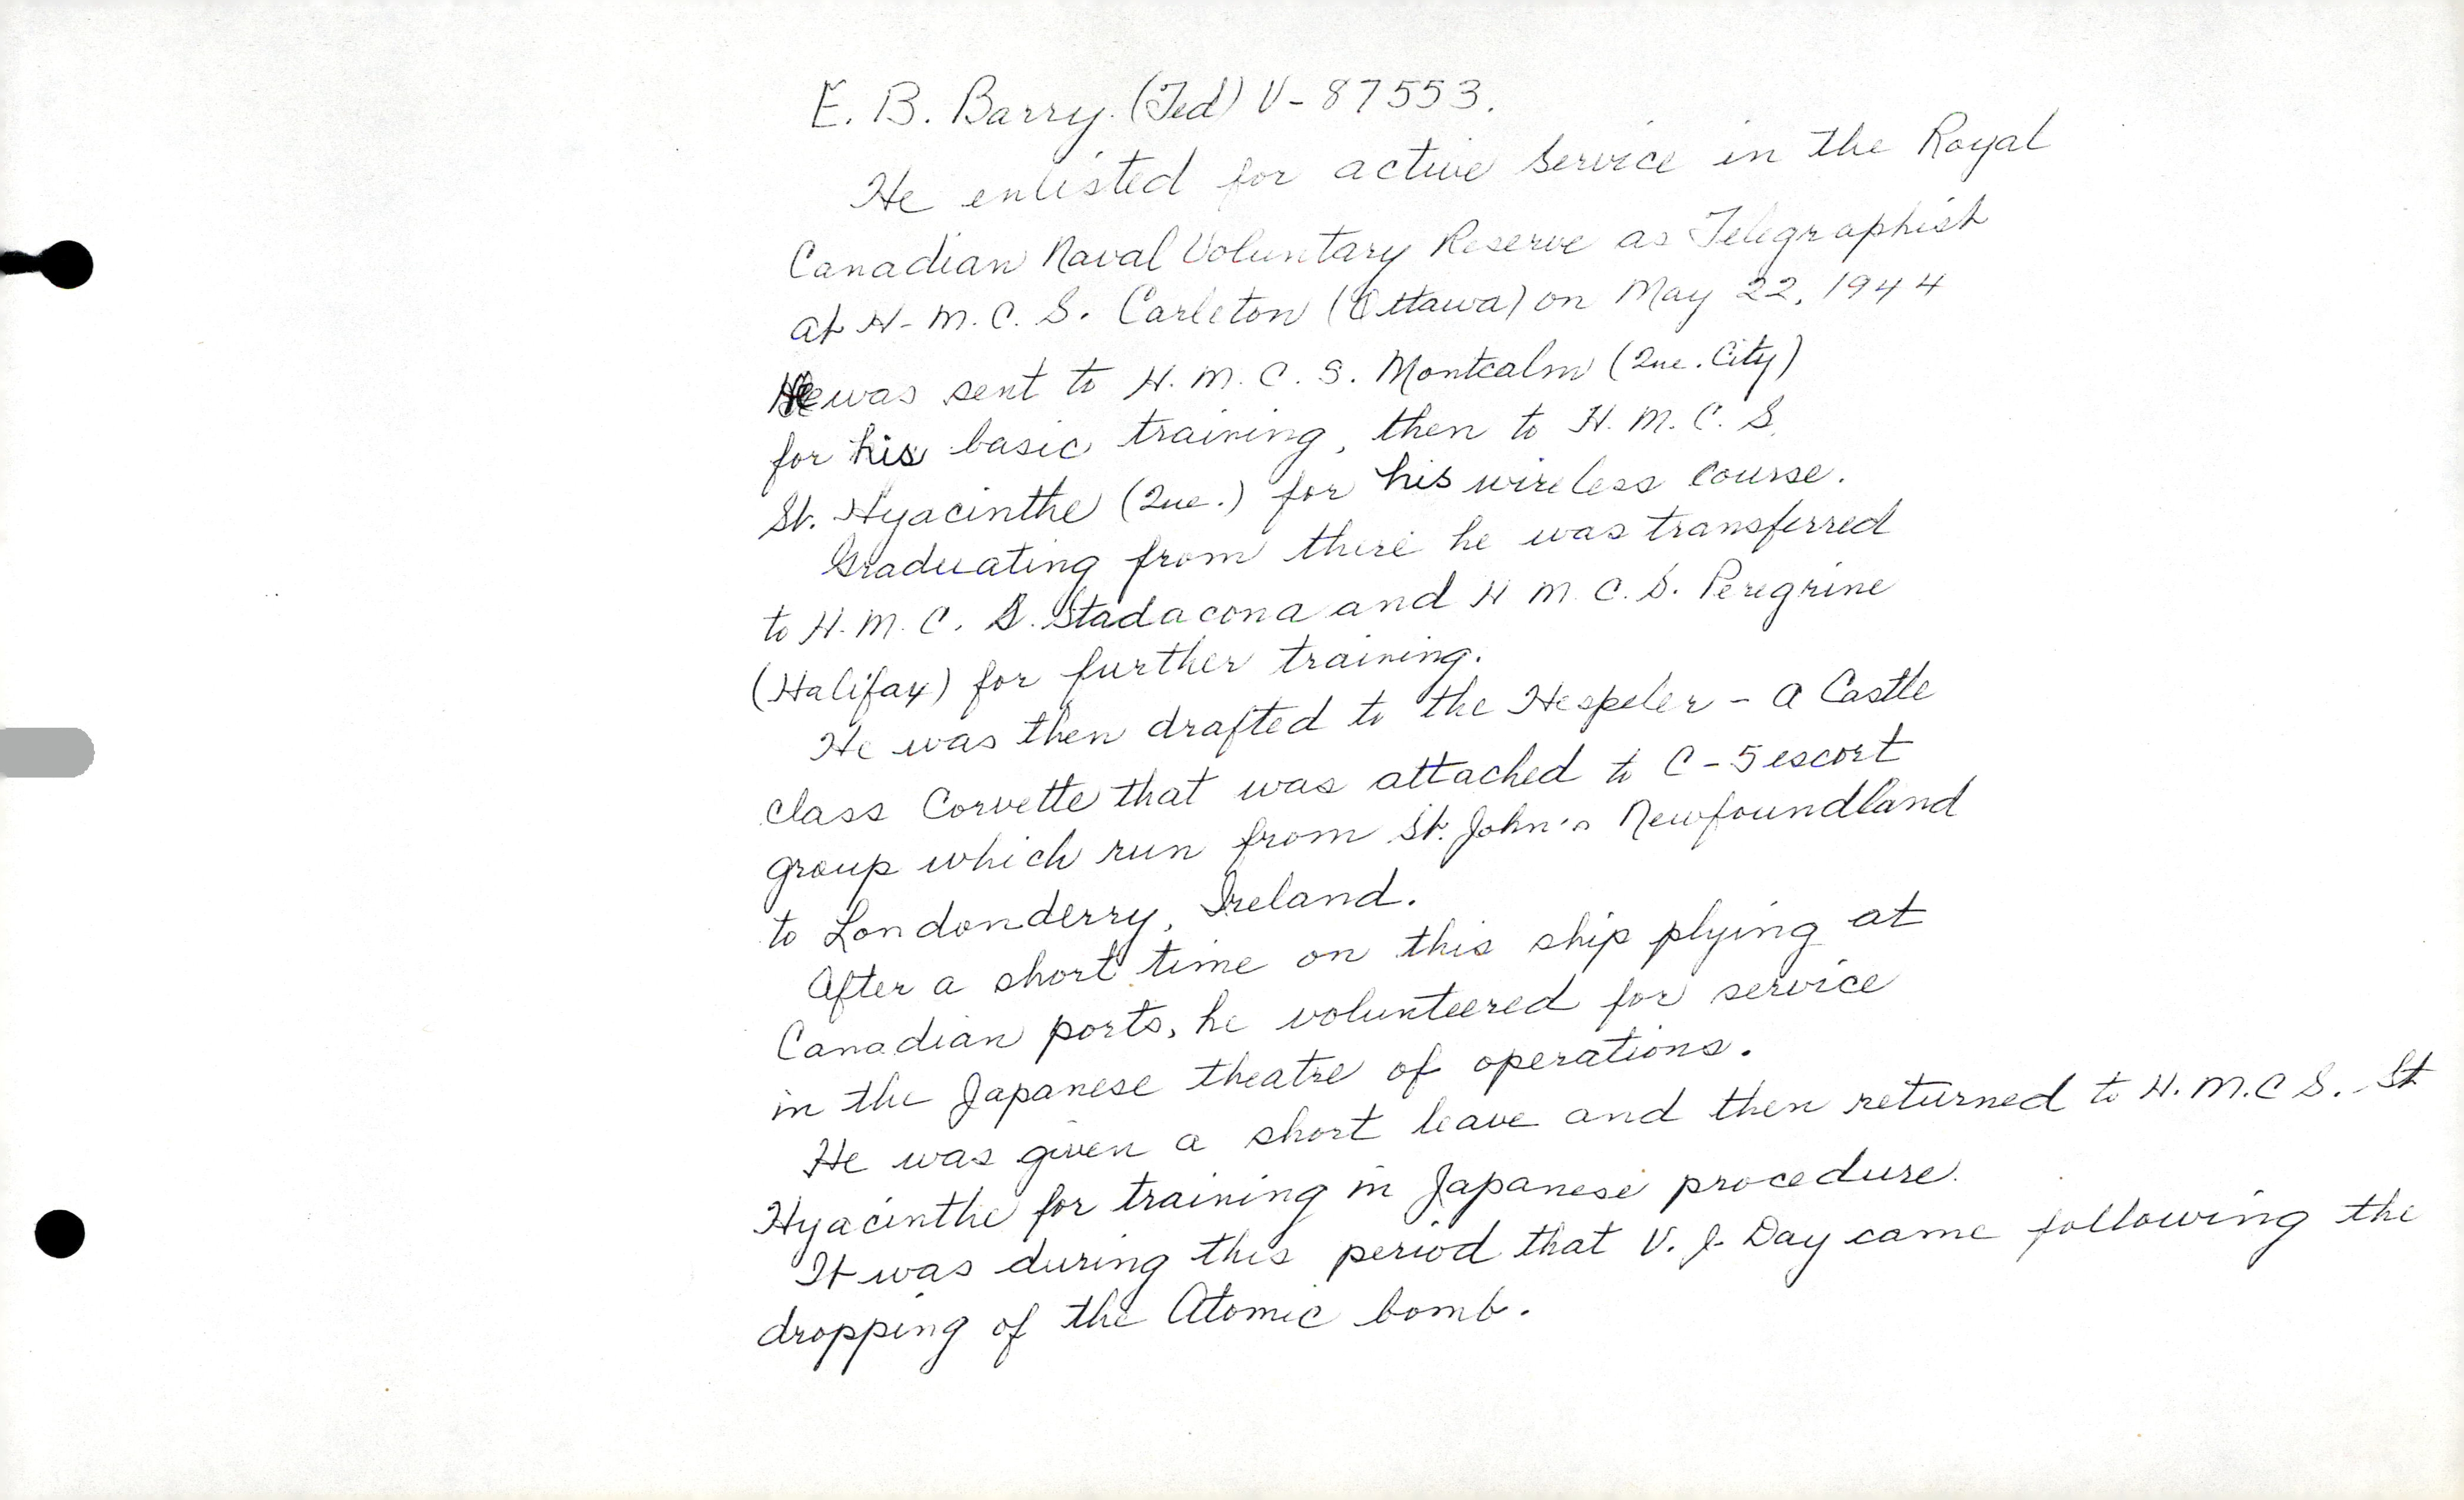 E. B. Barry. (Ted) V-87553.
He enlisted for active Service in the Royal
Canadian Naval Voluntary Reserve as Telegraphist
at H-M.C.S. Carleton (Ottawa) on May 22, 1944
He was sent to H.M.C.S. Montcalm (Que. City)
for his basic training, then to H.M.C.S.
St. Hyacinthe (Que.) for his wireless Course.
Graduating from there he was transferred
to H.M.C.S. Stadacona and H M.C.S. Peregrine
(Halifax) for further training.
He was then drafted to the Hespeler - a Castle
class Corvette that was attached to C-5 escort
group which run from St. John's Newfoundland
to Londonderry, Ireland.
After a short time on this ship plying at
Canadian ports, he volunteered for service
in the Japanese theatre of operations.
He was given a short leave and then returned to H.M.C S. St
Hyacinthe for training in Japanese procedure.
It was during this period that V.J. Day came following the
dropping of the Atomic bomb.